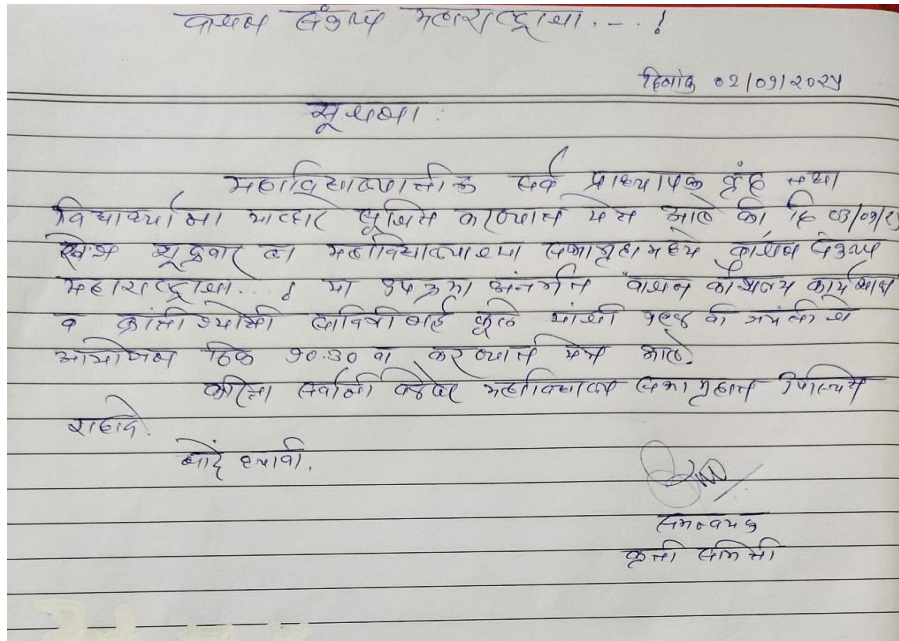 वाचन संकल्प महाराष्ट्राचा...!
दिनांक 02/01/2025
सूचना
महाविद्यालयातील सर्व प्राध्यापक वृंद तथा
विद्यार्थ्यांना याव्दारे सूचित करण्यात येते आहे की दि 03/01/
शुक्रवार ला महाविद्यालयाच्या सभागृहामध्ये वाचन संकल्प
महाराष्ट्राचा....! या उपक्रमा अंतर्गत वाचन कौशल्य कार्यशाळा
व क्रांती ज्योती सावित्रीबाई फूले यांची १९४ वी जयंती चे
आयोजन ठिक १०.३० वा करण्यात येत आहे.
करिता सर्वांनी वेळेवर महाविद्यालय सभागृहात उपस्थित
राहावे.
नोंद घ्यावी.
समन्वयक
कृती समिती